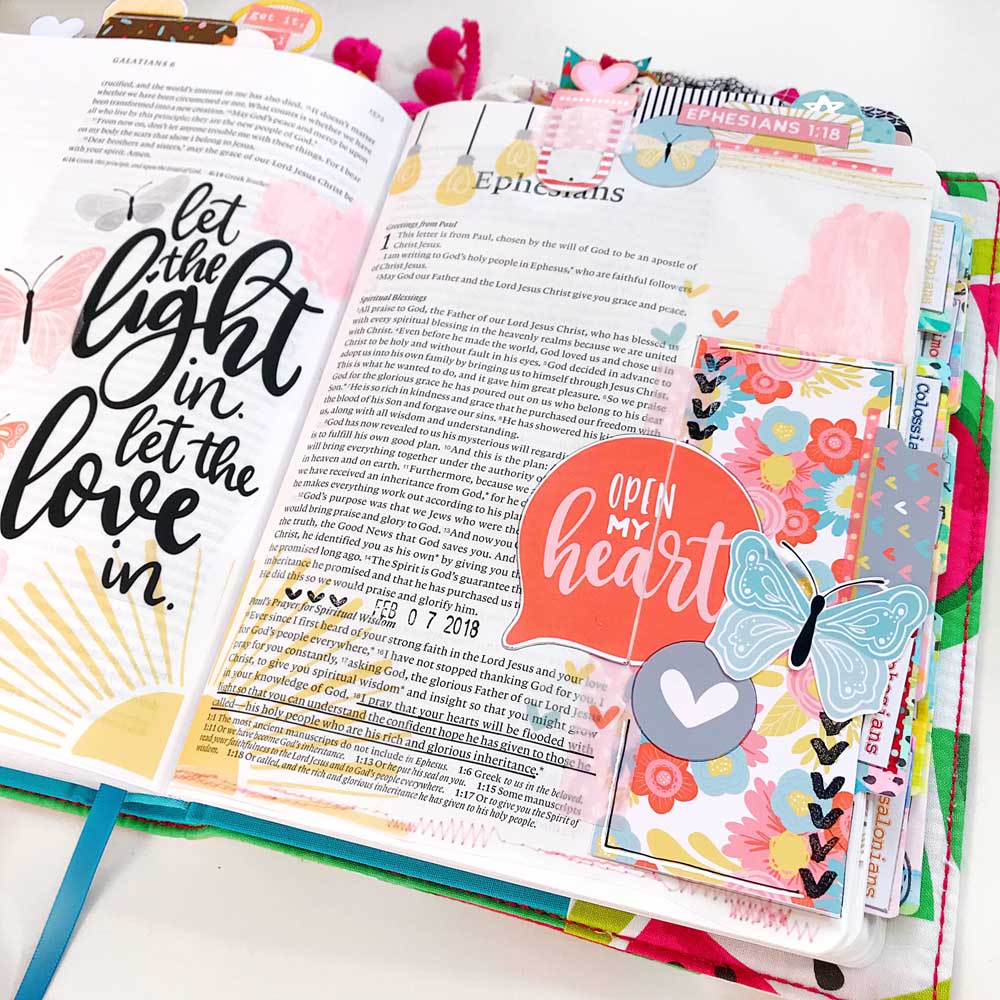 get it,
GALATIANS 6
1573
crucified, and the world's interest in me has also died. 15It doesn't matter
whether we have been circumcised or not. What counts is whether we have
been transformed into a new creation. 16May God's peace and mercy be upon
all who live by this principle; they are the new people of God.*
17From now on, don't let anyone trouble me with these things. For I bear
on my body the scars that show I belong to Jesus.
18Dear brothers and sisters,* may the grace of our Lord Jesus Christ be
with your spirit. Amen.
let
the
light
in.
let the
love
in.
EPHESIANS 1:18
Ephesians
Greetings from Paul
1 This letter is from Paul, chosen by the will of God to be an apostle of
Christ Jesus.
I am writing to God's holy people in Ephesus,* who are faithful followers
of Christ Jesus.
2May God our Father and the Lord Jesus Christ give you grace and peace.
Spiritual Blessings
3All praise to God, the Father of our Lord Jesus Christ, who has blessed us
with every spiritual blessing in the heavenly realms because we are united
with Christ. 4Even before he made the world, God loved us and chose us in
Christ to be holy and without fault in his eyes. 5God decided in advance to
adopt us into his own family by bringing us to himself through Jesus Christ.
This is what he wanted to do, and it gave him great pleasure. 6So we praise
God for the glorious grace he has poured out on us who belong to his dear
Son.* 7He is so rich in kindness and grace that he purchased our freedom with
the blood of his Son and forgave our sins. 8He has showered his
us, along with all wisdom and understanding.
9God has now revealed to us his mysterious will
is to fulfill his own good plan. 10And this is the plan:
will bring everything together under the authority
in heaven and on earth. 11Furthermore, because we
we have received an inheritance from God,* for he
he makes everything work out according to his
12God's purpose was that we Jews who were the
would bring praise and glory to God. 13And now you
the truth, the Good News that God saves you. And
Christ, he identified you as his own* by giving you
he promised long ago. 14The Spirit is God's guarantee
inheritance he promised and that he has purchased us
He did this so we would praise and glorify him.
FEB 07 2018
Paul's Prayer for Spiritual Wisdom
15Ever since I first heard of your strong faith in the Lord Jesus and your love
for God's people everywhere,* 16I have not stopped thanking God for you. I
pray for you constantly, 17asking God, the glorious Father of our Lord Jesus
Christ, to give you spiritual wisdom* and insight so that you might grow
in your knowledge of God. 18I pray that your hearts will be flooded with
light so that you can understand the confident hope he has given to those he
called—his holy people who are his rich and glorious inheritance.*
1:1 The most ancient manuscripts do not include in Ephesus. 1:6 Greek to us in the beloved.
1:11 Or we have become God's inheritance. 1:13 Or he put his seal on you. 1:15 Some manuscripts
read your faithfulness to the Lord Jesus and to God's people everywhere. 1:17 Or to give you the Spirit of
wisdom. 1:18 Or called, and the rich and glorious inheritance he has given to his holy people.
OPEN
MY
heart
Philippians
Colossian